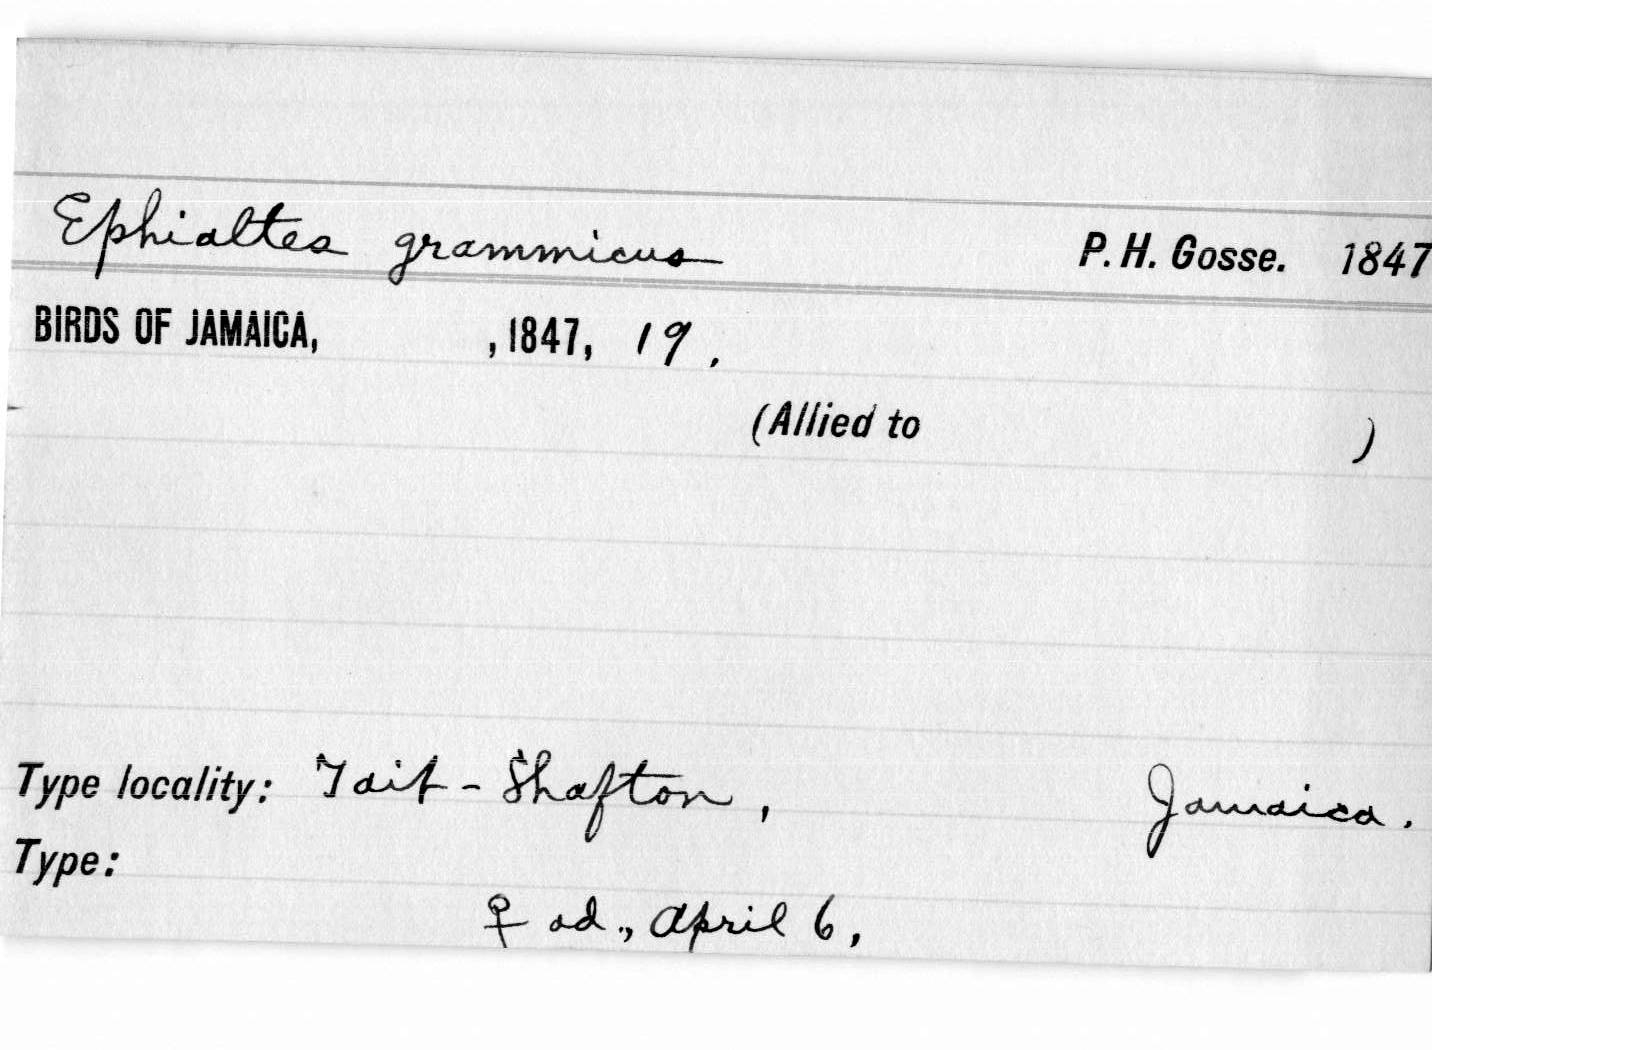 Ephialtes grammicus P. H. Gosse. 1847
BIRDS OF JAMAICA, , 1847, 19.
(Allied to )
Type locality: Tait-Shafton, Jamaica.
Type:
♀ ad., April 6,